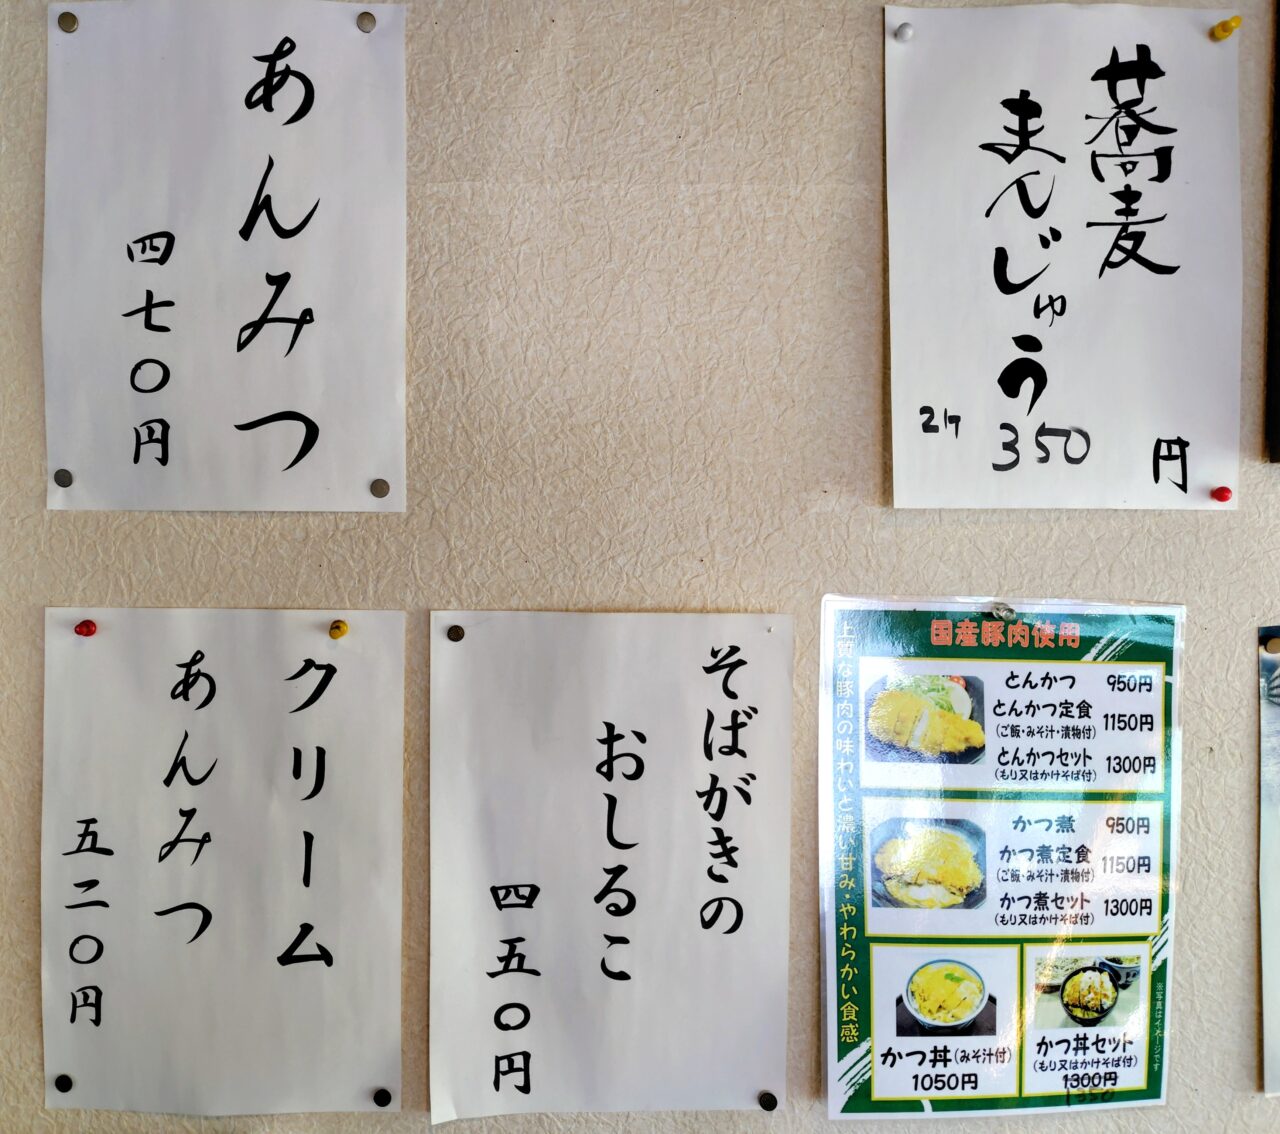 あんみつ
四七〇円
蕎麦
まんじゅう
2ケ 350 円
クリーム
あんみつ
五二〇円
そばがきの
おしるこ
四五〇円
国産豚肉使用
上質な豚肉の味わいと濃い甘み・やわらかい食感
とんかつ 950円
とんかつ定食 1150円
(ご飯・みそ汁・漬物付)
とんかつセット 1300円
(もり又はかけそば付)
かつ煮 950円
かつ煮定食 1150円
(ご飯・みそ汁・漬物付)
かつ煮セット 1300円
(もり又はかけそば付)
かつ丼(みそ汁付)
1050円
かつ丼セット
(もり又はかけそば付)
1300円
1350
※写真はイメージです